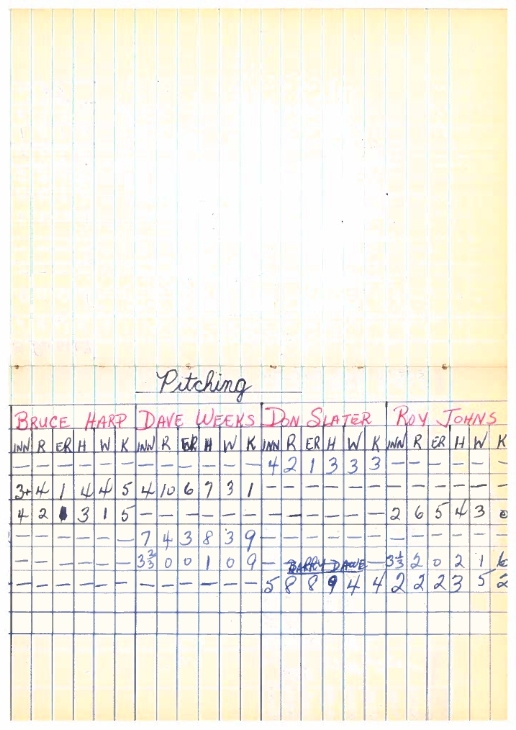 Pitching
BRUCE HARP DAVE WEEKS DON SLATER ROY JOHNS
INN R ER H W K INN R ER H W K INN R ER H W K INN R ER H W K
— — — — — — — — — — — — 4 2 1 3 3 3 — — — — — —
3+ 4 1 4 4 5 4 10 6 7 3 1 — — — — — — — — — — — —
4 2 3 1 5 — — — — — — — — — — — — 2 6 5 4 3
— — — — — — 7 4 3 8 3 9 — — — — — — — — — — — —
— — — — — — 3 2/3 0 0 1 0 9 — BARRY DAWE — 3 1/3 2 0 2 1
— — — — — — — — — — — — 5 8 8 9 4 4 2 2 2 3 5 2